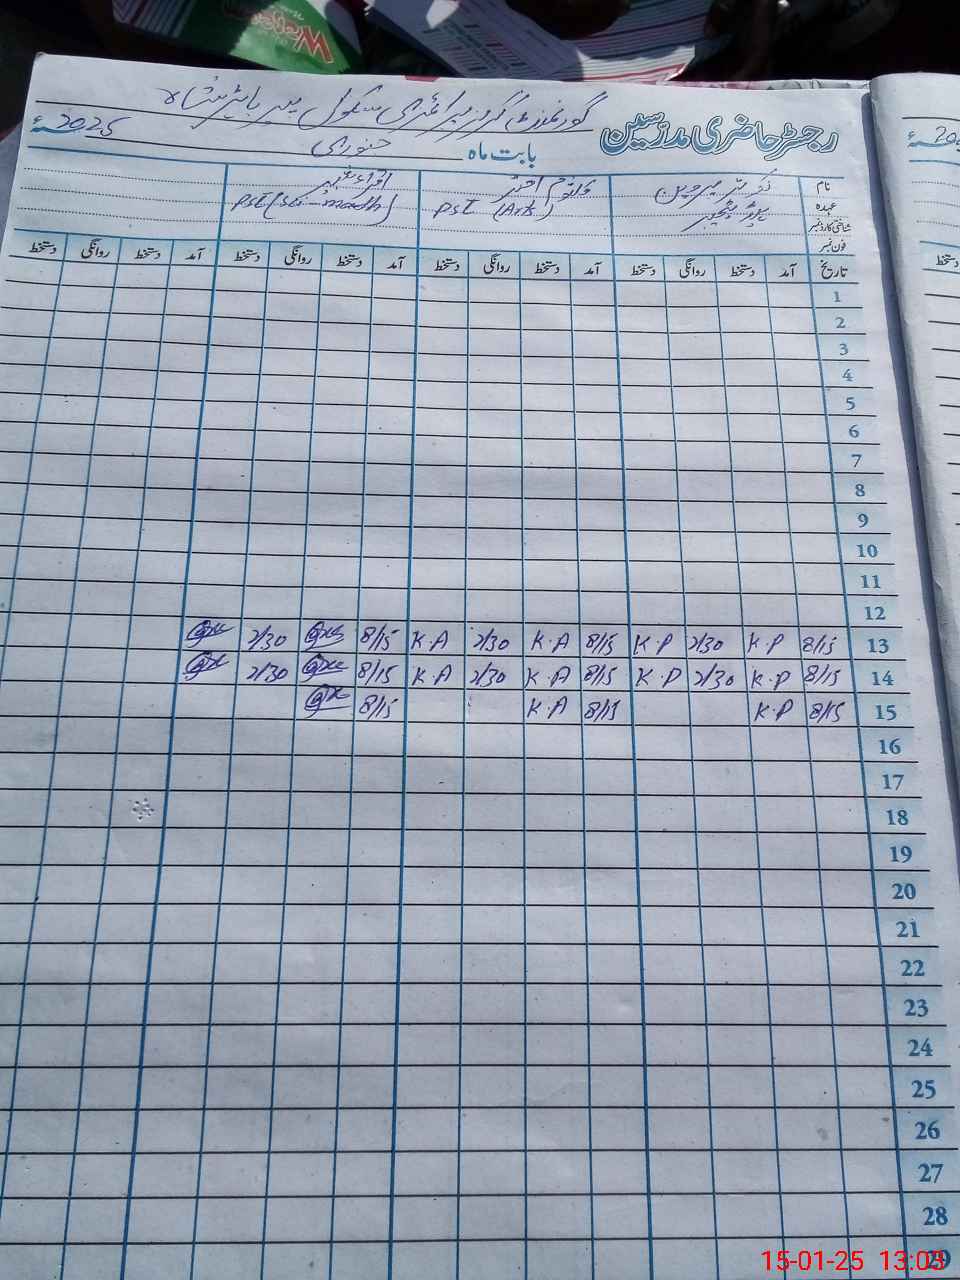 رجسٹر حاضری مدرسین
گورنمنٹ گرلز پرائمری سکول پیر
بابت ماہ جنوری 2025ء
نام
عہدہ
شناختی کارڈ نمبر
فون نمبر
پروین
کلثوم اختر
PST (Arts)
PST (Sci-math)
تاریخ آمد دستخط روانگی دستخط آمد دستخط روانگی دستخط آمد دستخط روانگی دستخط آمد دستخط روانگی دستخط
1
2
3
4
5
6
7
8
9
10
11
12
13 8/15 K.P 2/30 K.P 8/15 K.A 2/30 K.A 8/15 2/30
14 8/15 K.P 2/30 K.P 8/15 K.A 2/30 K.A 8/15 2/30
15 8/15 K.P 8/15 K.A 8/15
16
17
18
19
20
21
22
23
24
25
26
27
28
29
15-01-25 13:03